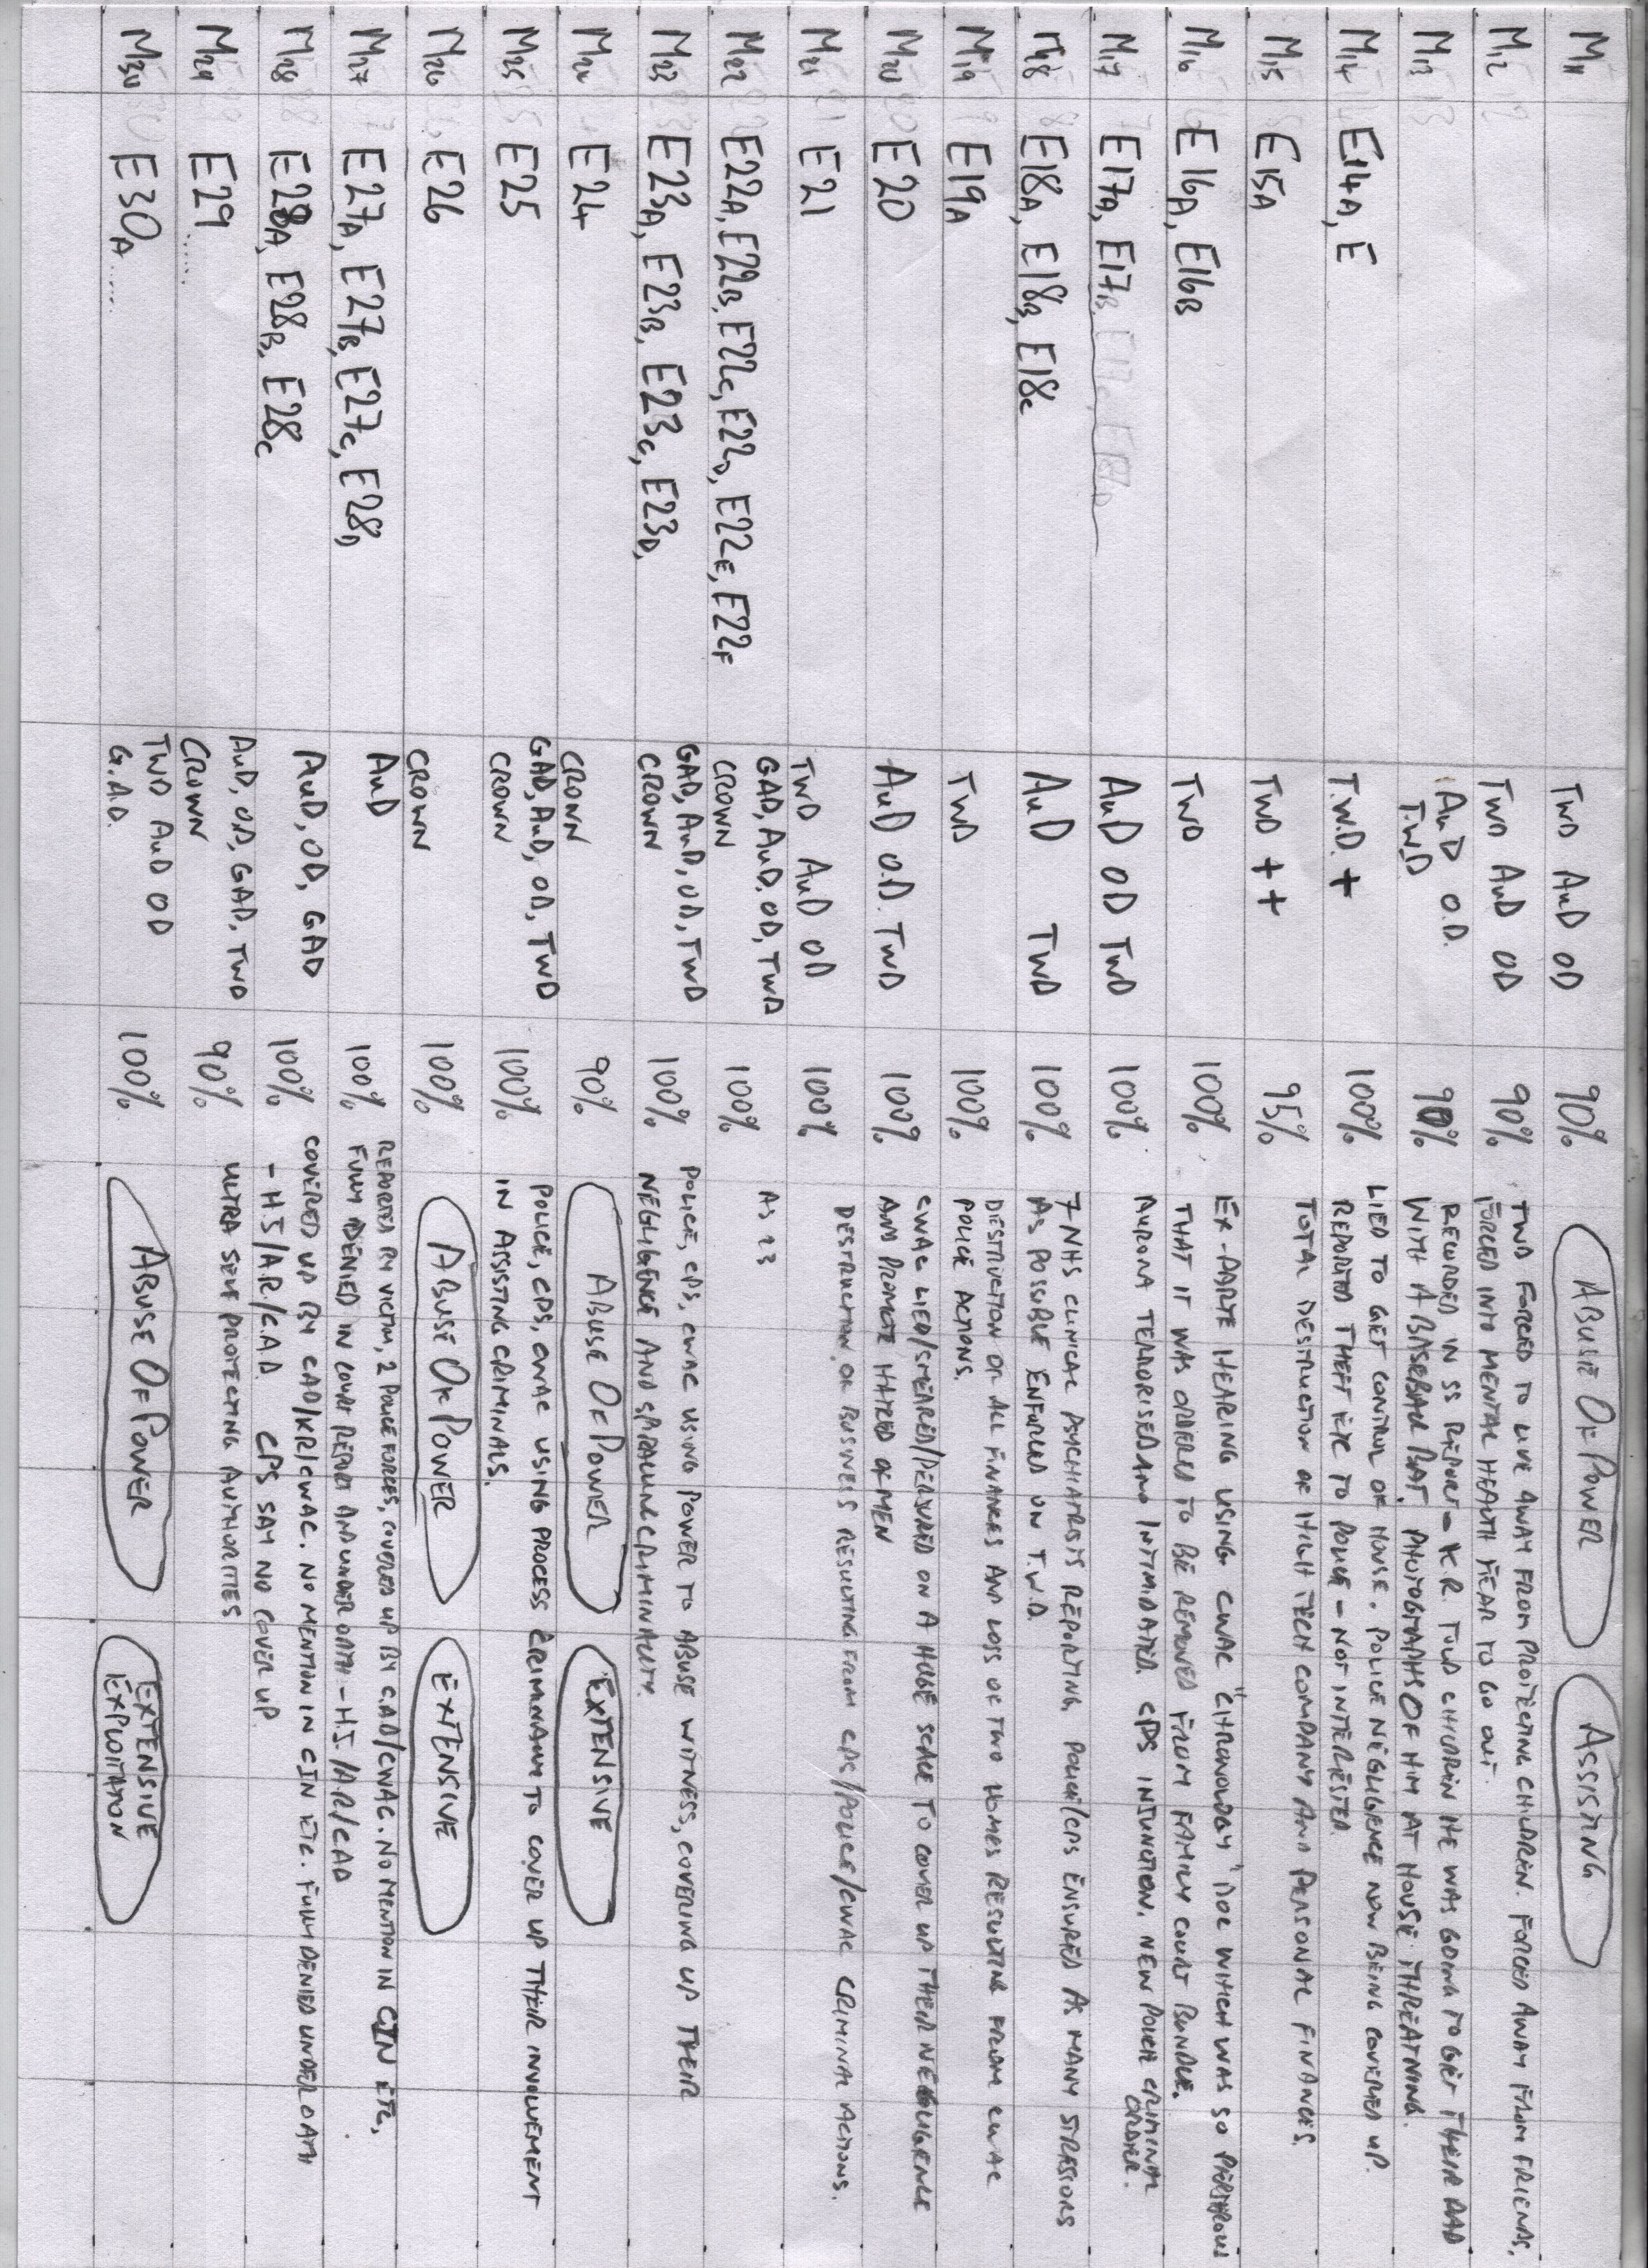 M11 TWD AuD OD 90% ABUSE OF POWER ASSISTING
M12 TWD AuD OD 90% TWD FORCED TO LIVE AWAY FROM PROTECTING CHILDREN. FORCED AWAY FROM FRIENDS,
FORCED INTO MENTAL HEALTH FEAR TO GO OUT.
M13 AuD O.D. 90% RECORDED IN SS REPORT - K.R. TOLD CHILDREN HE WAS GOING TO GET THEIR DAD
T.W.D WITH A BASEBALL BAT. PHOTOGRAPHS OF HIM AT HOUSE THREATNING.
M14 E14A, E T.W.D. + 100% LIED TO GET CONTROL OF HOUSE. POLICE NEGLIGENCE NOW BEING COVERED UP.
REPORTED THEFT ETC TO POLICE - NOT INTERESTED.
M15 E15A TWD ++ 95% TOTAL DESTRUCTION OF HIGH TECH COMPANY AND PERSONAL FINANCES.
M16 E16A, E16B TWD 100% EX-PARTE HEARING USING CWAC "CHRONOLOGY" DOC WHICH WAS SO
THAT IT WAS ORDERED TO BE REMOVED FROM FAMILY COURT BUNDLE.
M17 E17A, E17B, E17C, E17D AuD OD TWD 100% AURORA TERRORISED AND INTIMIDATED. CPS INJUNCTION. NEW POLICE CRIMINAL
ORDER.
M18 E18A, E18B, E18C AuD TWD 100% 7 NHS CLINICAL PSYCHIATRISTS REPORTING. POLICE/CPS ENSURED AS MANY STRESSORS
AS POSSIBLE ENFORCED ON T.W.D.
M19 E19A TWD 100% DESTRUCTION OF ALL FINANCES AND LOSS OF TWO HOMES RESULTING FROM CWAC
POLICE ACTIONS.
M20 E20 AuD O.D. TWD 100% CWAC LIED/SMEARED/PERJURED ON A HUGE SCALE TO COVER UP THEIR NEGLIGENCE
AND PROMOTE HATRED OF MEN
M21 E21 TWD AuD OD 100% DESTRUCTION OF BUSINESS RESULTING FROM CPS/POLICE/CWAC CRIMINAL ACTIONS.
M22 E22A, E22B, E22C, E22D, E22E, E22F GAD, AuD, OD, TWD 100% AS 23
CROWN
M23 E23A, E23B, E23C, E23D, GAD, AuD, OD, TWD 100% POLICE, CPS, CWAC USING POWER TO ABUSE WITNESS, COVERING UP THEIR
CROWN NEGLIGENCE AND SPIRALLING CRIMINALITY.
M24 E24 CROWN 90% ABUSE OF POWER EXTENSIVE
M25 E25 GAD, AuD, OD, TWD 100% POLICE, CPS, CWAC USING PROCESS CRIMINALLY TO COVER UP THEIR INVOLVEMENT
CROWN IN ASSISTING CRIMINALS.
M26 E26 CROWN 100% ABUSE OF POWER EXTENSIVE
M27 E27A, E27B, E27C, E28D AuD 100% REPORTED BY VICTIM, 2 POLICE FORCES, COVERED UP BY C.A.D/CWAC. NO MENTION IN CIN ETC,
FULLY DENIED IN COURT REPORT AND UNDER OATH - H.J./A.R/CAD
M28 E28A, E28B, E28C AuD, OD, GAD 100% COVERED UP BY CAD/KR/CWAC. NO MENTION IN CIN ETC. FULLY DENIED UNDER OATH
- HJ/A.R/C.A.D. CPS SAY NO COVER UP
M29 E29..... AuD, OD, GAD, TWD 90% ULTRA SELF PROTECTING AUTHORITIES
CROWN
M30 E30A..... TWD AuD OD 100% ABUSE OF POWER EXTENSIVE
G.A.D. EXPLOITATION